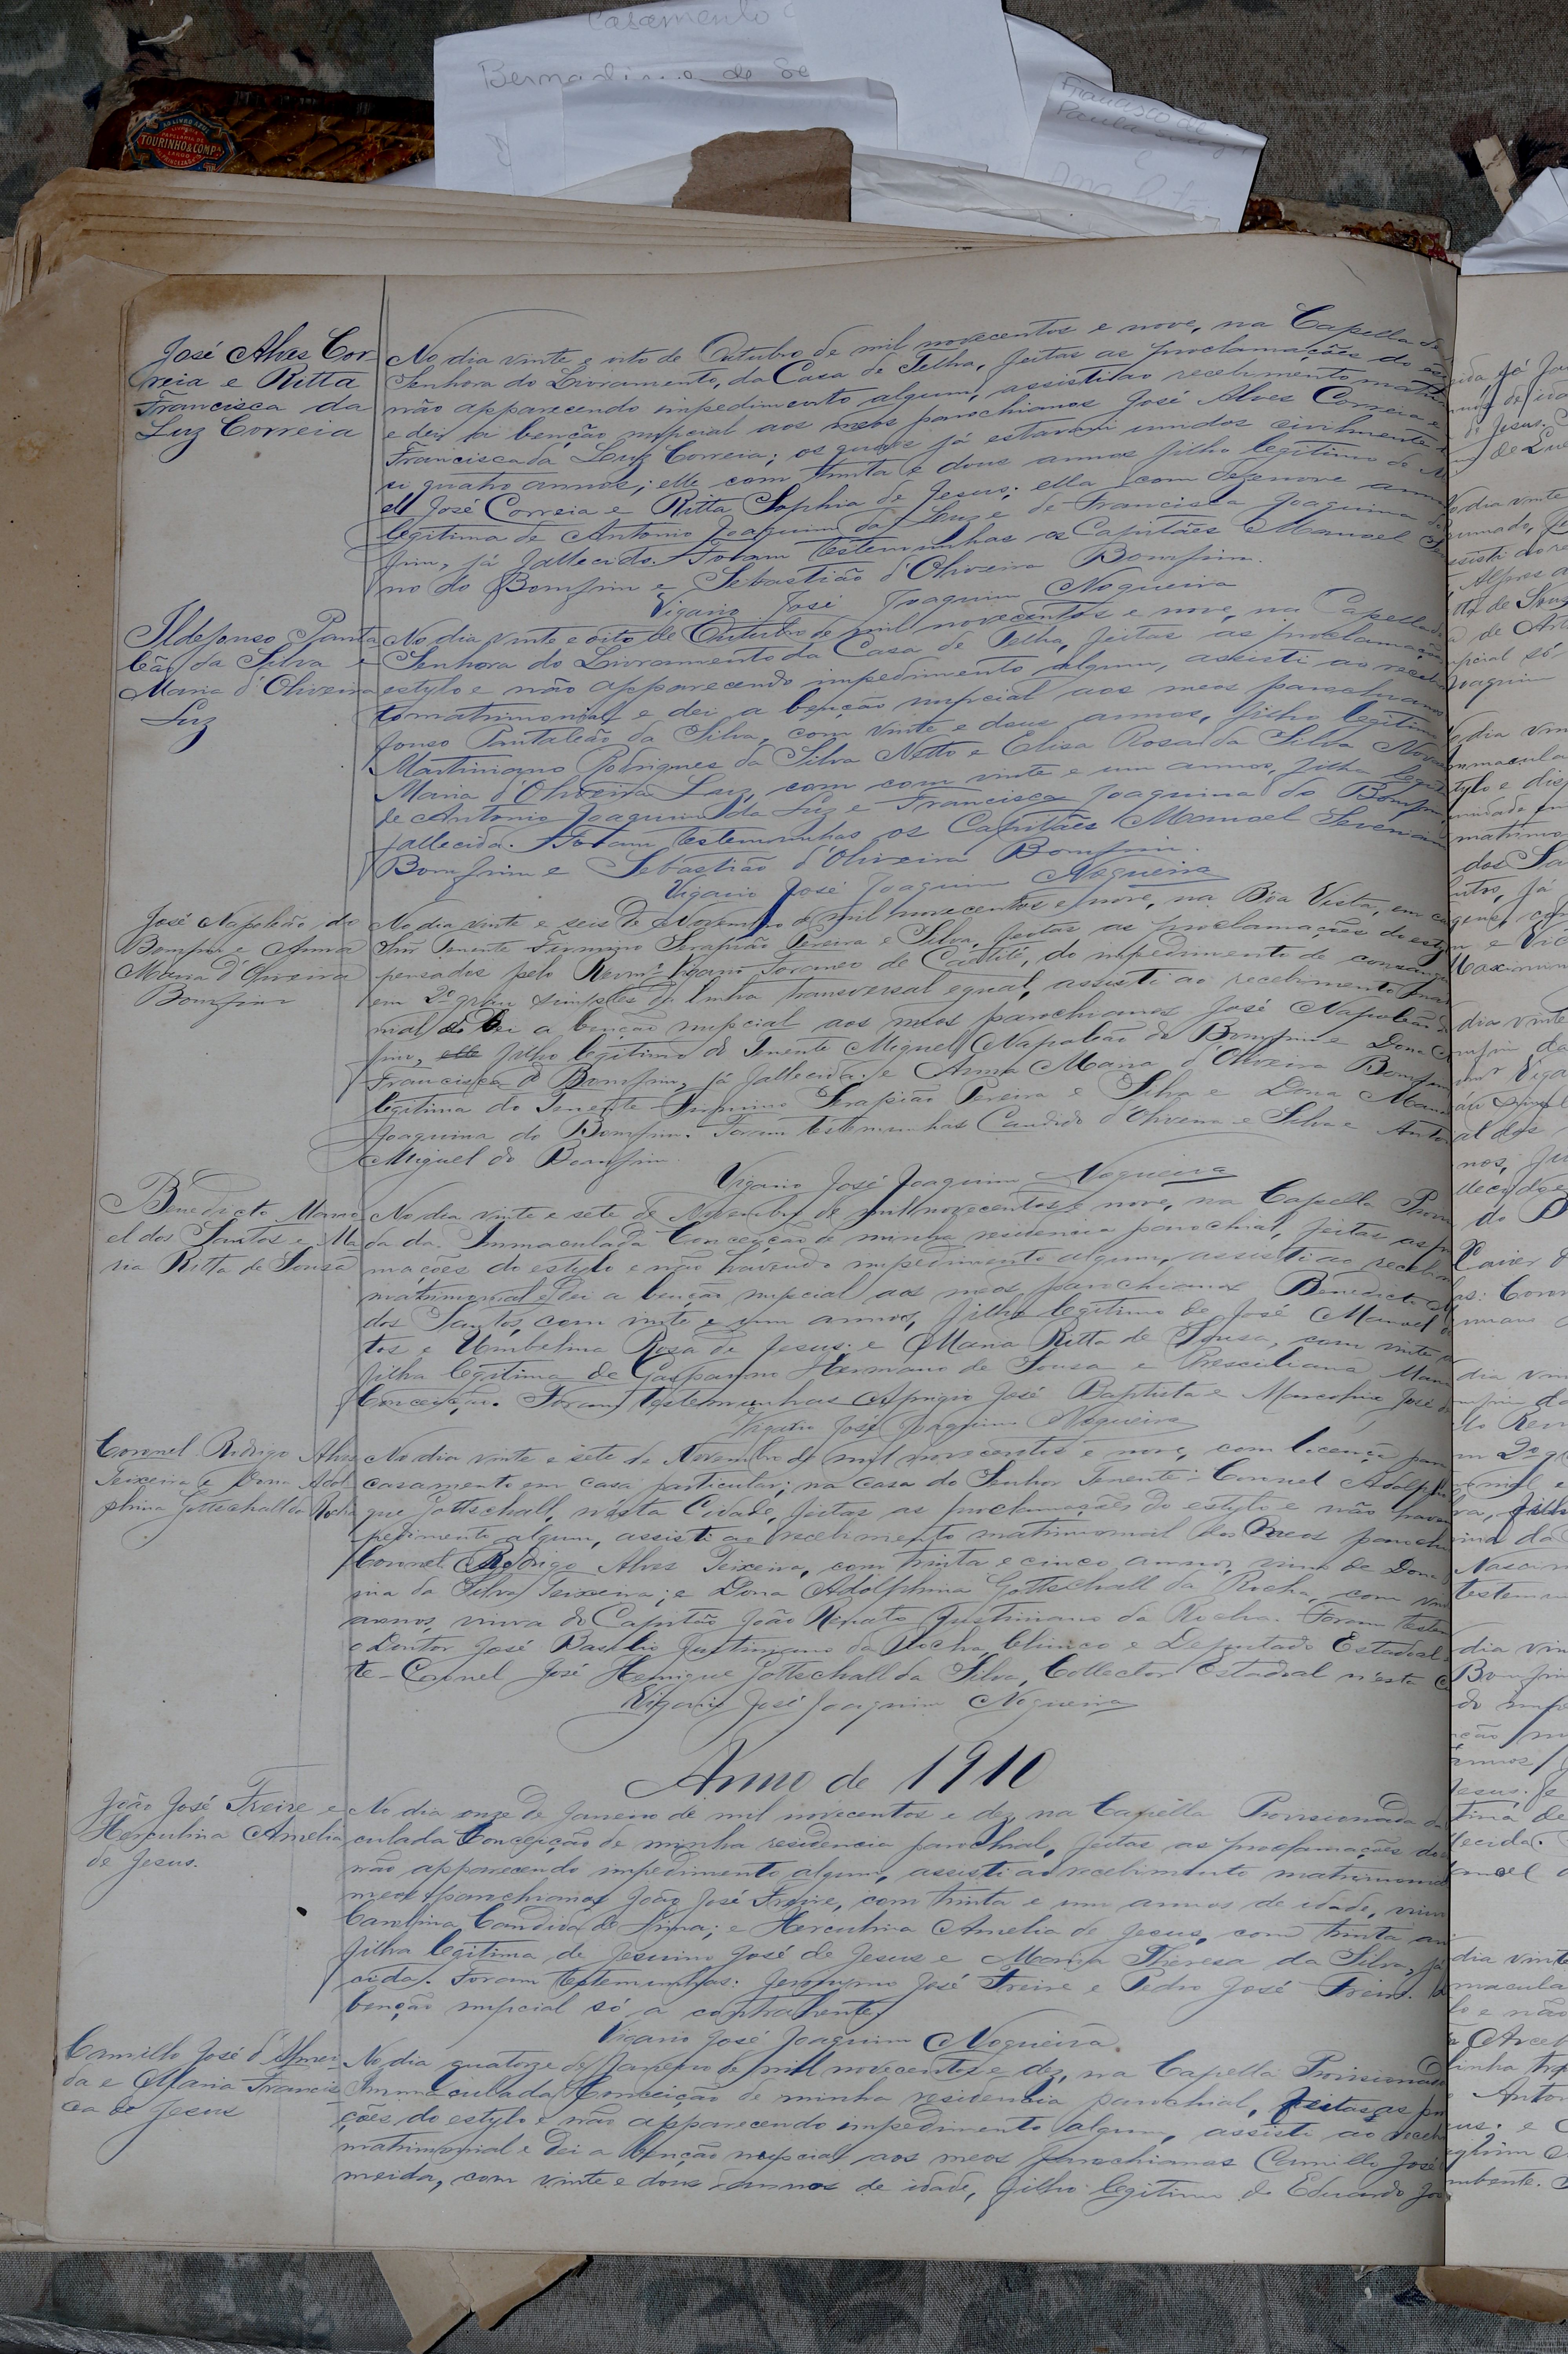 Casamento
Bernardino de Se
Francisco de
Paula
e
TOURINHO & COMP.
José Alves Cor
reia e Ritta
Francisca da
Luz Correia
No dia vinte e oito de Outubro de mil novecentos e nove, na Capella de
Senhora do Livramento, da Casa de Telha, feitas as proclamações do es
não apparecendo impedimento algum, assisti ao recebimento matri
e dei a benção nupcial aos meos parochianos José Alves Correia e
Francisca da Luz Correia; os quaes já estavam unidos civilmente
quatro annos; elle com trinta e dous annos filho legitimo de M
el José Correia e Ritta Sophia de Jesus; ella com dezenove ann
legitima de Antonio Joaquim da Luz e de Francisca Joaquina do
fim, já fallecida. Foram testemunhas os Capitães Manoel Se
no do Bomfim e Sebastião d'Oliveira Bomfim.
Vigario José Joaquim Nogueira
Ildefonso Panta
leão da Silva e
Maria d'Oliveira
Luz
No dia vinte e oito de Outubro de mil novecentos e nove, na Capella da
Senhora do Livramento da Casa de Telha, feitas as proclamações
estylo e não apparecendo impedimento algum, assisti ao recebi
to matrimonial e dei a benção nupcial aos meos parochianos
fonso Pantaleão da Silva, com vinte e dous annos, filho legitimo
Martiniano Rodrigues da Silva Netto e Elisa Rosa da Silva
Maria d'Oliveira Luz, com com vinte e um annos, filha legit
de Antonio Joaquim da Luz e Francisca Joaquina do Bomfim
fallecida. Foram testemunhas os Capitães Manoel Severian
Bomfim e Sebastião d'Oliveira Bomfim.
Vigario José Joaquim Nogueira
José Napoleão do
Bomfim e Anna
Maria d'Oliveira
Bomfim
No dia vinte e seis de Novembro de mil novecentos e nove, na Bôa Vista, em ca
Snr Tenente Firmino Serapião Pereira e Silva, feitas as proclamações do esty
pensados pelo Revmo Vigario Foraneo de Caetité, do impedimento de consangui
em 2º grau simples da linha transversal egual, assisti ao recebimento matri
nial e dei a benção nupcial aos meos parochianos José Napoleão do
fim, elle filho legitimo do Tenente Miguel Napoleão do Bomfim e Dona
Francisca do Bomfim, já fallecida. e Anna Maria d'Oliveira Bomfim
legitima do Tenente Firmino Serapião Pereira e Silva e Dona Maria
Joaquina do Bomfim. Foram testemunhas Candido d'Oliveira e Silva e Anto
Miguel do Bomfim.
Vigario José Joaquim Nogueira
Benedicto Mano
el dos Santos e Ma
ria Ritta de Sousa
No dia vinte e sete de Novembro de mil novecentos e nove, na Capella Provi
da da Immaculada Conceição de minha residencia parochial, feitas as pr
mações do estylo e não havendo impedimento algum, assisti ao recebim
matrimonial e dei a benção nupcial aos meos parochianos Benedicto M
dos Santos, com vinte e um annos, filho legitimo de José Manoel d
tos e Umbelina Rosa de Jesus. e Maria Ritta de Sousa, com vinte
filha legitima de Gasparino Hermano de Sousa e Presciliana Mari
Conceição. Foram testemunhas Aprigio José Baptista e Marcolino José
Vigario José Joaquim Nogueira
Coronel Rodrigo Alves
Teixeira e Dona Adol
phina Gottschall da Rocha
No dia vinte e sete de Novembro de mil novecentos e nove, com licença para
casamento em casa particular; na casa do Senhor Tenente-Coronel Adolpho
que Gottschall, n'esta Cidade, feitas as proclamações do estylo e não haven
pedimento algum, assisti ao recebimento matrimonial dos meos parochi
Coronel Rodrigo Alves Teixeira, com trinta e cinco annos, viuvo de Dona
ria da Silva Teixeira; e Dona Adolphina Gottschall da Rocha, com vin
annos, viuva do Capitão João Renato Justiniano da Rocha. Foram testem
o Doutor José Basilio Justiniano da Rocha, Clinico e Deputado Estadoal
te-Coronel José Henrique Gottschall da Silva, Collector Estadoal n'esta C
Vigario José Joaquim Nogueira
Anno de 1910
João José Freire e
Herculina Amelia
de Jesus.
No dia onze de Janeiro de mil novecentos e dez na Capella Provisionada da
culada Conceição de minha residencia parochial, feitas as proclamações do
não apparecendo impedimento algum, assisti ao recebimento matrimonia
meos parochianos João José Freire, com trinta e um annos de idade, viuv
Carolina Candida de Lima; e Herculina Amelia de Jesus, com trinta an
filha legitima de Jesuino José de Jesus e Maria Theresa da Silva, já
cida. Foram testemunhas: Jeronymo José Freire e Pedro José Freire.
benção nupcial só a contrahente.
Vigario José Joaquim Nogueira.
Camillo José d'Almei
da e Maria Francis
ca de Jesus
No dia quatorze de Janeiro de mil novecentos e dez, na Capella Provisionada
Immaculada Conceição de minha residencia parochial, feitas as pro
ções do estylo e não apparecendo impedimento algum, assisti ao receb
matrimonial e dei a benção nupcial aos meos parochianos Camillo José
meida, com vinte e dous annos de idade, filho legitimo de Eduardo Jo